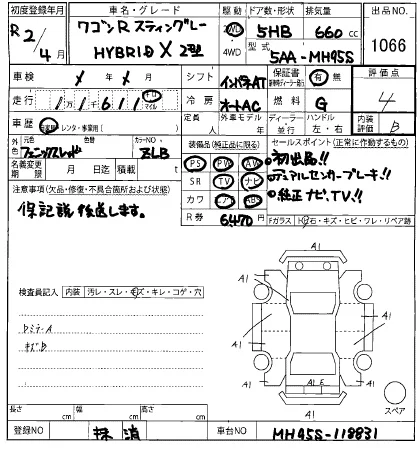 初度登録年月 車名・グレード 駆動 ドア数・形状 排気量 出品NO.
R2/4月 ワゴンR スティングレー 2WD 5HB 660cc 1066
HYBRID X 2型 4WD 型式 5AA-MH95S
車検 / / シフト インパネAT 保証書 有 無 評価点
走行 11,611 キロ マイル 冷房 オートAC 燃料 G 4
車歴 自家用 レンタ・事業用( ) 定員 人 外車モデル 年 ディーラー 並行 ハンドル 左・右 内装評価 B
外色 元色 フェニックスレッド 色替 カラーNO ZLB 装備品(純正品に限る) セールスポイント(正常に作動するもの)
名義変更期限 月 日迄 積載 t PS PW AW 初出品!!
注意事項(欠品・修復・不具合箇所および状態) SR TV ナビ デュアルセンサーブレーキ!!
保記説後送します。 カワ エアB ABS 純正ナビ、TV!!
R券 6470 Fガラス トビ石・キズ・ヒビ・ワレ・リペア跡
検査員記入 内装 汚レ・スレ・キズ・キレ・コゲ・穴
キズB
A1
A1
A1
A1
A1
A1 E
A1
スペア
長さ cm 幅 cm 高さ cm
登録NO 抹消 車台NO MH95S-118831